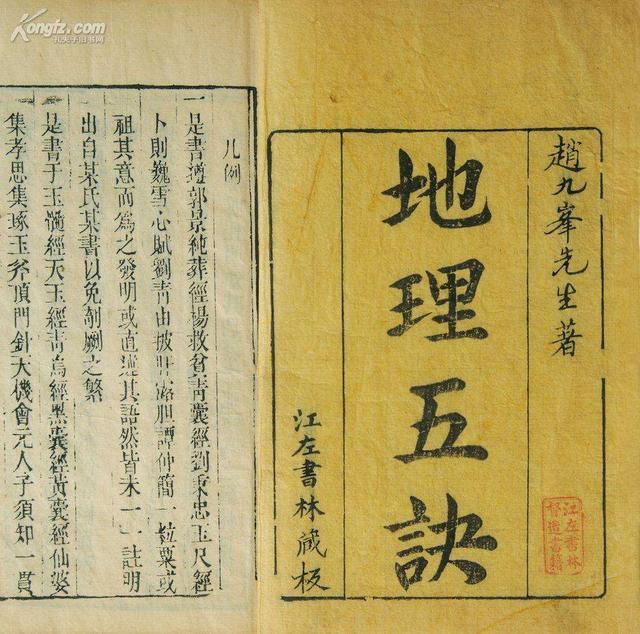 趙九峯先生著
地理五訣
江左書林藏板
江左書林
督造書籍
凡例
一是書遵郭景純葬經楊救貧青囊經劉秉忠玉尺經
卜則巍雪心賦劉青田披肝露胆譚仲簡一粒粟或
祖其意而為之發明或直述其語然皆未一一註明
出自某氏某書以免剞劂之繁
是書于玉髓經天玉經青烏經黑囊經黃囊經仙婆
集孝思集琢玉斧頂門針大機會元人子須知一貫
Kongfz.com
孔夫子旧书网